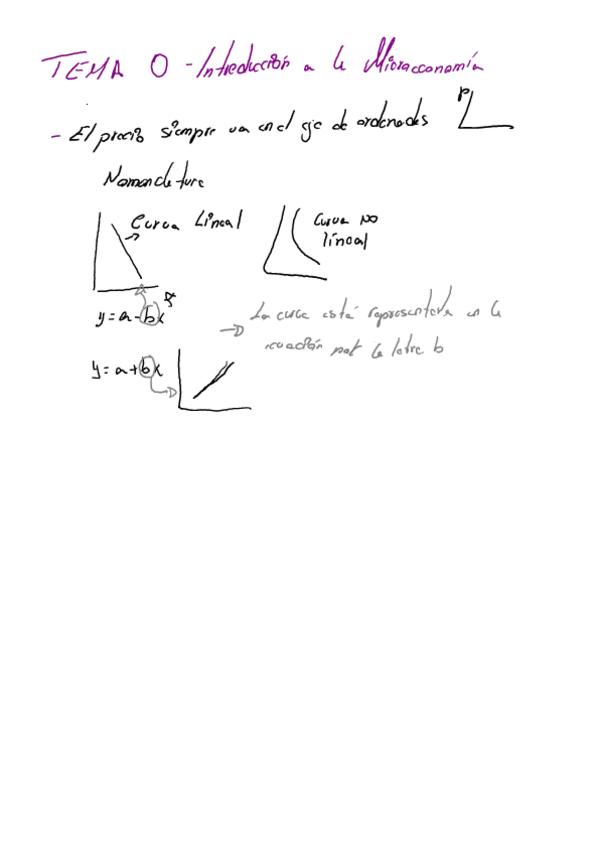 TEMA 0 - Introducción a la Microeconomía
- El precio siempre va en el eje de ordenadas P
Nomenclatura
Curva Lineal
Curva NO lineal
y = a - bx
La curva está representada en la
ecuación por la letra b
y = a + bx